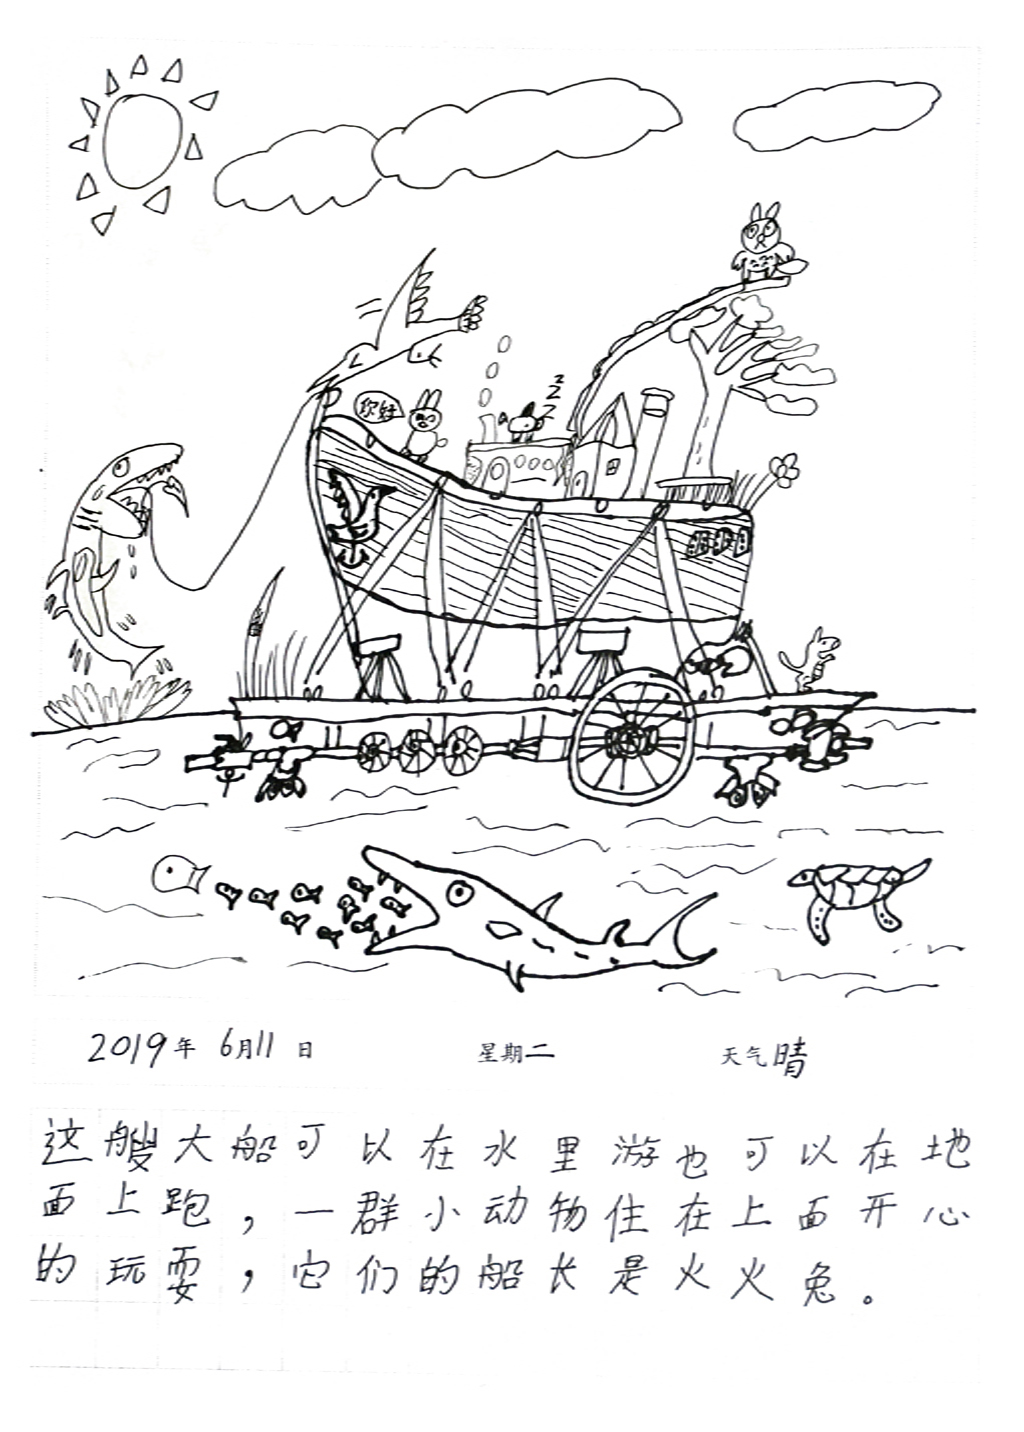 你好
2019年 6月11日 星期二 天气晴
这艘大船可以在水里游也可以在地
面上跑，一群小动物住在上面开心
的玩耍，它们的船长是火火兔。